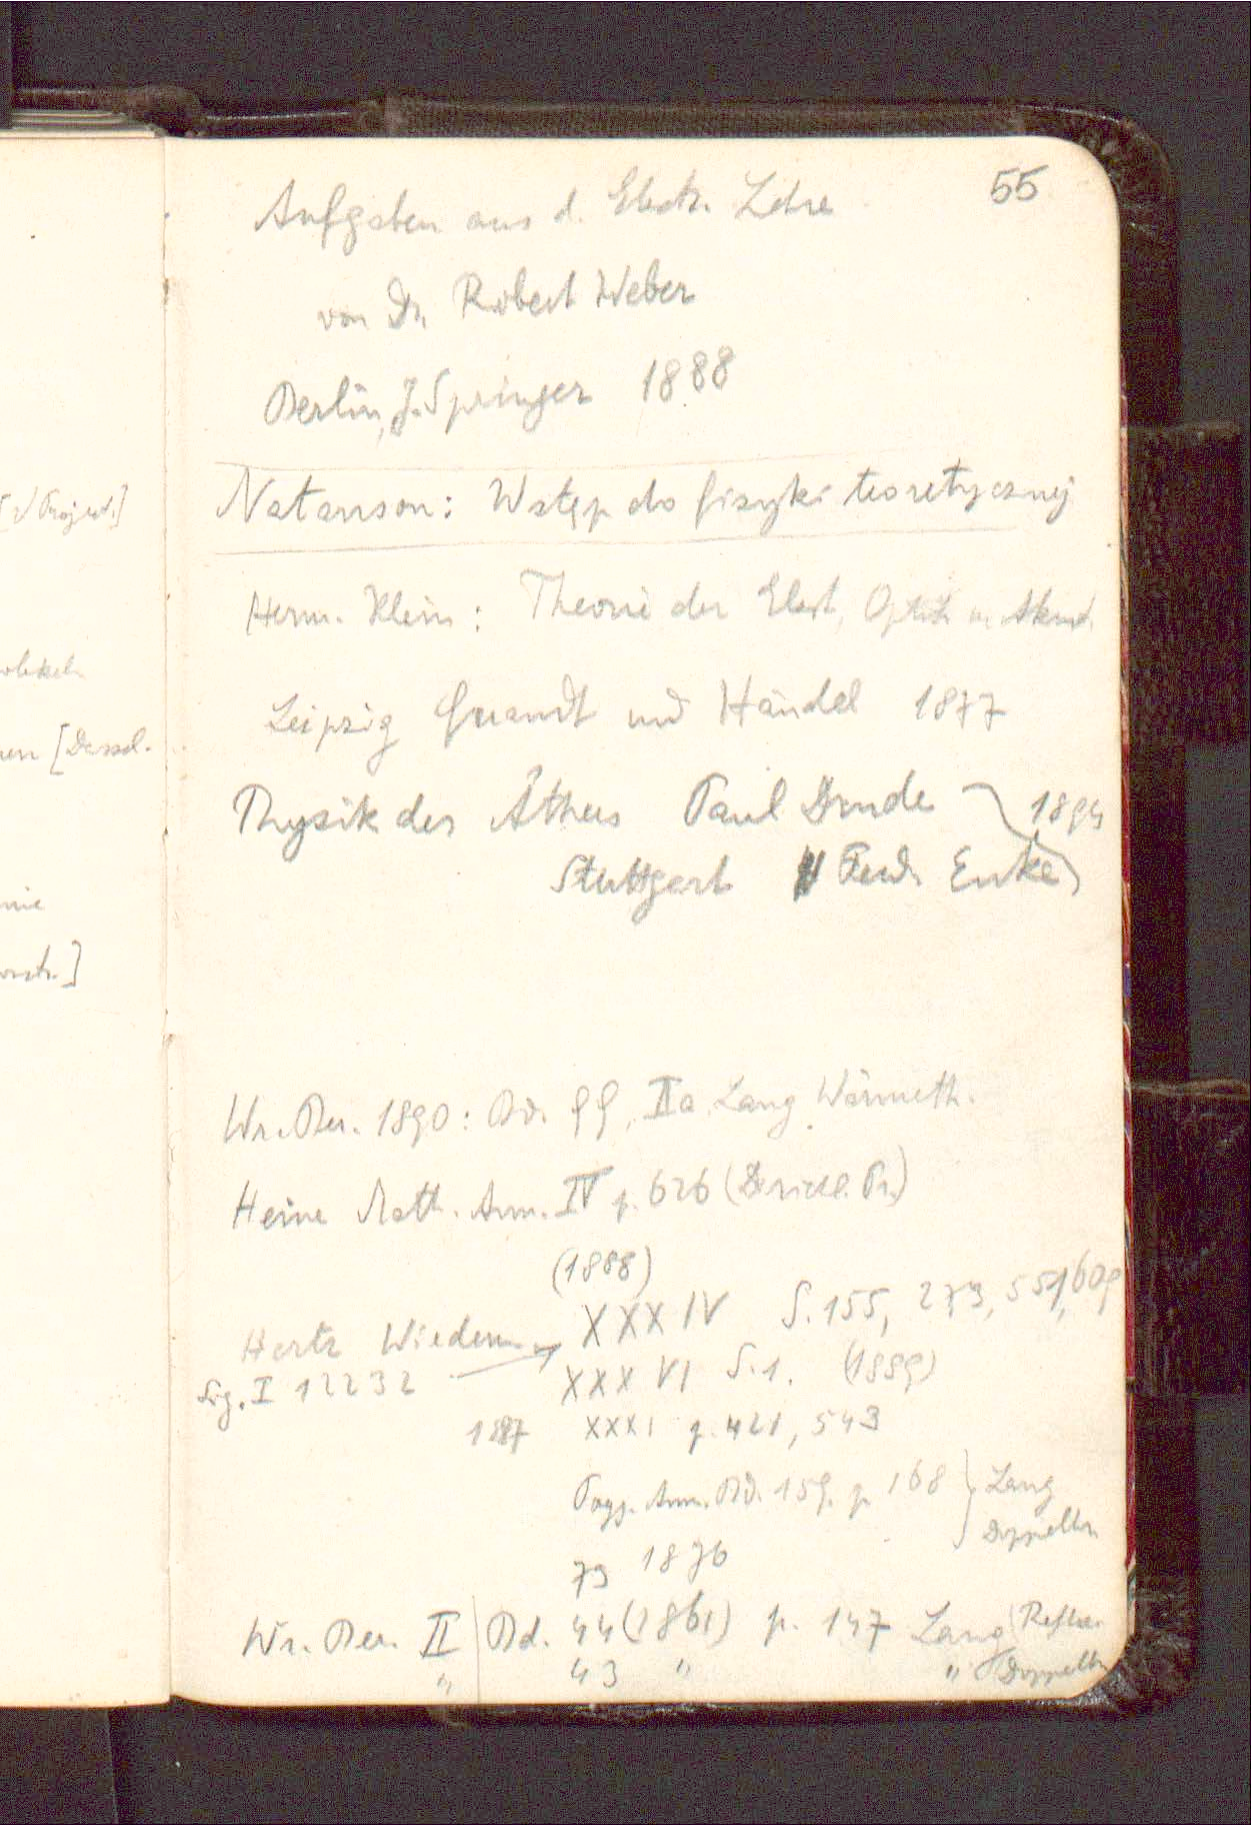 55
Aufgaben aus d. Elektr. Lehre
von Dr. Robert Weber
Berlin, J. Springer 1888
Natanson: Wstęp do fizyki teoretycznej
Herm. Klein: Theorie der Elast, Optik u. Akust.
Leipzig Quandt und Händel 1877
Physik des Äthers Paul Drude 1894
Stuttgart Ferd. Enke
Wr. Ber. 1890: Bd. 99, IIa Lang Wärmeth.
Heine Math. Ann. IV p. 626 (Dirichl. Pr.)
(1888)
Hertz Wiedem. XXXIV S. 155, 273, 551, 609
Sig. I 12232 XXXVI S. 1. (1889)
1887 XXXI p. 421, 543
Pogg. Ann. Bd. 159. p. 168 Lang
Doppelbr
1876
73
Wr. Ber. II Bd. 44 (1861) p. 147 Lang Reflex.
" 43 " " Doppelbr
[Dessel.